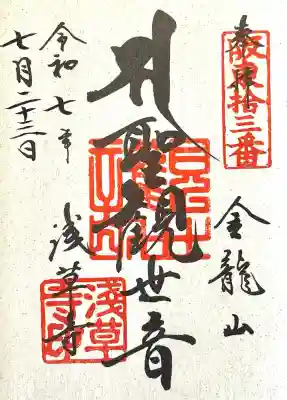 奉拝
坂東拾三番
金龍山
聖観世音
浅草寺
淺草
令和七年
七月二十三日